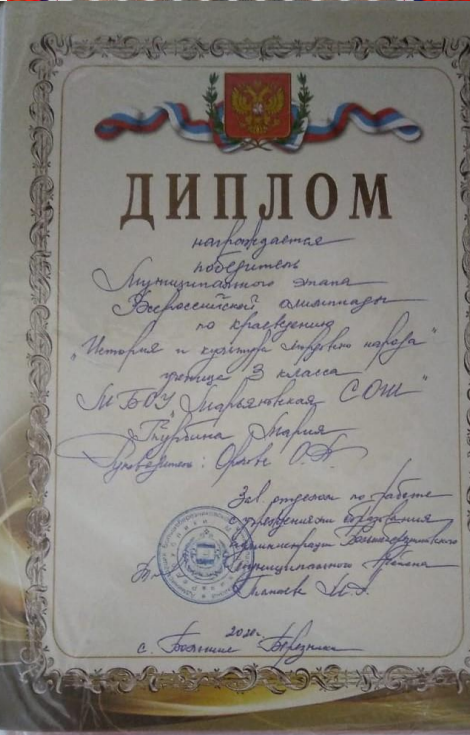 ДИПЛОМ
награждается
победитель
Муниципального этапа
Всероссийской олимпиады
по краеведению
"История и культура мордовского народа"
ученица 3 класса
МБОУ "Марьяновская СОШ"
Мария
Руководитель: О.
Зав. отделом по работе
с учреждениями образования
администрации Большеберезниковского
муниципального района
с. Большие Березники